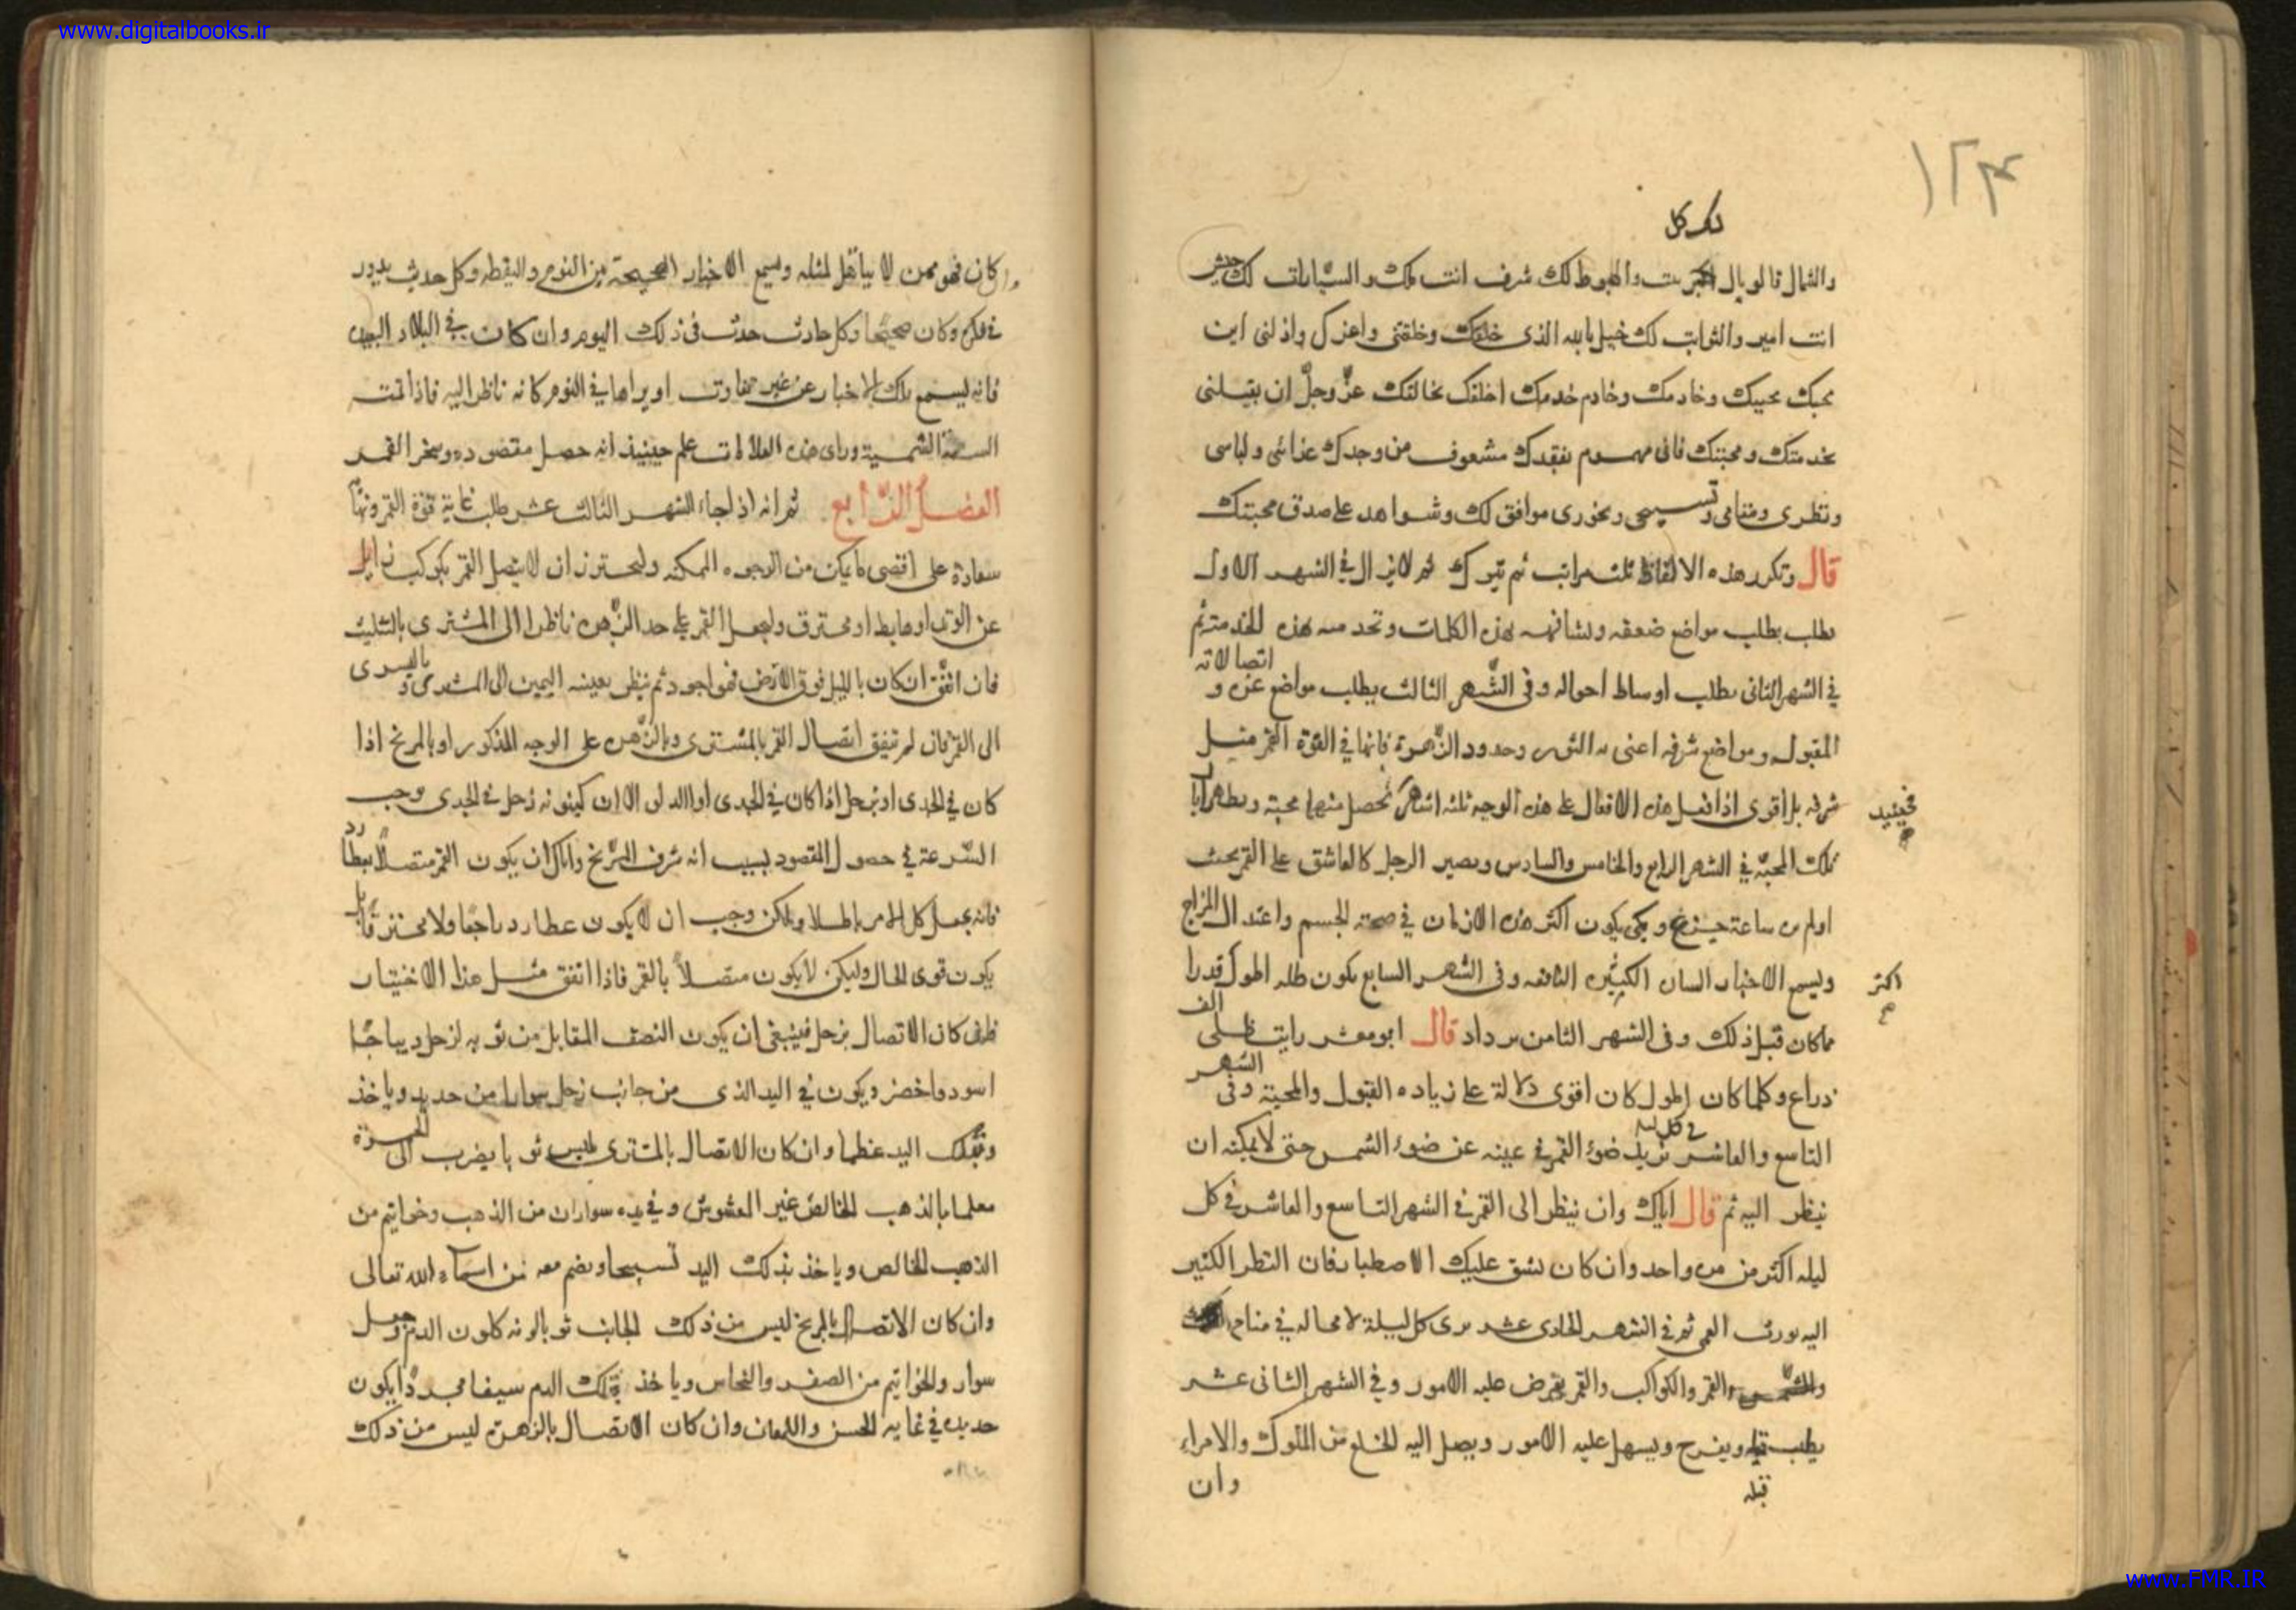 www.digitalbooks.ir
١٢٣
لك كل
والشمال قالوبال والهبوط لك شرف انت ملك والسيارات لك جيش
انت امير والثوابت لك خيل بالله الذى خلقك وخلقنى واعزك واذلنى اين
محبك محييك وخادمك وخادم خدمك اخلفك بخالقك عزّ وجلّ ان يقبلنى
بخدمتك ومحبتك فانى مهموم بفقدك مشعوف من وجدك غذائى ولباسى
ونظرى ومنامى وتسبيحى وبخورى موافق لك وشواهد على صدق محبتك
قال وتكرر هذه الالفاظ ثلث مراتب ثم يترك ثم لا يزال في الشهر الاول
يطلب بطلب مواضع ضعفه ويشافهه بهذه الكلمات وتخدمه بهذه الخدمة ثم
في الشهر الثانى يطلب اوساط احواله وفى الشّهر الثالث يطلب مواضع عزه و اتصالاته
المقبوله ومواضع شرفه اعنى به الثور وحدود الزّهرة فانها في القوّة القمر مثل
شرفه بل اقوى اذا فعل هذه الافعال على هذه الوجه ثلثه اشهر تحصل منهما محبة ويظهر آيات
فحينئذ
تلك المحبّة في الشهر الرابع والخامس والسادس ويصير الرجل كالعاشق على القمر بحيث
اولم ير ساعة حيزنع ويبكى يكون اكثر هذه الازمان في صحة الجسم واعتدال المزاج
وليسمع الاخبار السان الكثيره النافعه وفى الشهر السابع يكون ظله اطول قدرا
اكثر
مما كان قبل ذلك وفى الشهر الثامن يزداد قال ابو معشر رايت ظلى الف
ذراع وكلما كان اطول كان اقوى دلالة على زياده القبول والمحبة وفى الشهر
التاسع والعاشر يزيد ضوء القمر في عينه عن ضوء الشمس حتى لا يمكنه ان
في كل ليلة
ينظر اليه ثم قال اياك وان ينظر الى القمر في الشهر التاسع والعاشر في كل
ليله اكثر من مره واحد وان كان يشق عليك الاصطبار فان النظر الكثير
اليه يورث العمى ثم في الشهر الحادى عشر يرى كل ليلة لا محاله في منامه
والشمس والقمر والكواكب والقمر يعرض عليه الامور وفي الشهر الثانى عشر
يطيب قلبه ويفرح ويسهل عليه الامور ويصل اليه الخلع من الملوك والامراء
قبله
وان
وان كان فهو ممن لا يتاهل لمثله ويسمع الاخبار الصحيحة بين النوم واليقظه وكل حديث يدور
في فكره وكان صحيحا وكل حادث حدث في ذلك اليوم وان كان في البلاد البعيده
فانه ليسمع تلك الاخبار عن غير تفاوت او يراها في النوم كانه ناظر اليه فاذا تمت
السنة الشمسية وراى هذه العلامات علم حينئذ انه حصل مقصوده وسخر القمر
الفصل الرّابع ثم انه اذا جاء الشهر الثالث عشر طلب غاية قوّة القمر ونهاية
سعادة على اقصى ما يكن من الوجوه الممكنه وليحترز ان لا يتصل القمر بكوكب زايل
عن الوتد او هابط او محترق وليجعل القمر على حد الزّهره ناظرا الى المشترى بالتثليث
فان اتفّق ان كان بالليل فوق الارض فهو اجود ثم ينظر بعينه اليمين الى المشترى و باليسرى
الى القمر فان لم يتفق اتصال القمر بالمشترى وبالزّهره على الوجه المذكور او بالمريخ اذا
كان في الجدى او بزحل اذا كان في الجدى او الدلو الا ان كينونه زحل في الجدى يوجب
السّرعة في حصول المقصود بسبب انه شرف المرّيخ واياك ان يكون القمر متصلاً بعطارد
فانه يجعل كل الامر باطلا ولكن وجب ان لا يكون عطارد راجعا ولا محترقا بل
يكون قوى الحال وليكن لا يكون متصلاً بالقمر فاذا اتفق مثل هذا الاختيار
نظر فان كان الاتصال بزحل فينبغى ان يكون النصف المقابل من ثوبه لزحل ديباجًا
اسود واخضر ويكون في اليد الذى من جانب زحل سوارا من حديد وياخذ
وبتلك اليد عظما وان كان الاتصال بالمشترى يلبس ثوبا يضرب الى الصفرة
معلما بالذهب الخالص غير المغشوش وفي يده سواران من الذهب وخواتيم من
الذهب الخالص وياخذ بذلك اليد تسبيحا ويضم معه من اسمآء الله تعالى
وان كان الاتصال بالمريخ ليس من ذلك الجانب ثوبا لونه كلون الدم وجعل
سوار والخواتيم من الصفر والنحاس وياخذ بتلك اليد سيفا مجردًا يكون
حديده في غايه الحسن واللمعان وان كان الاتصال بالزهرة ليس من ذلك
www.FMR.IR